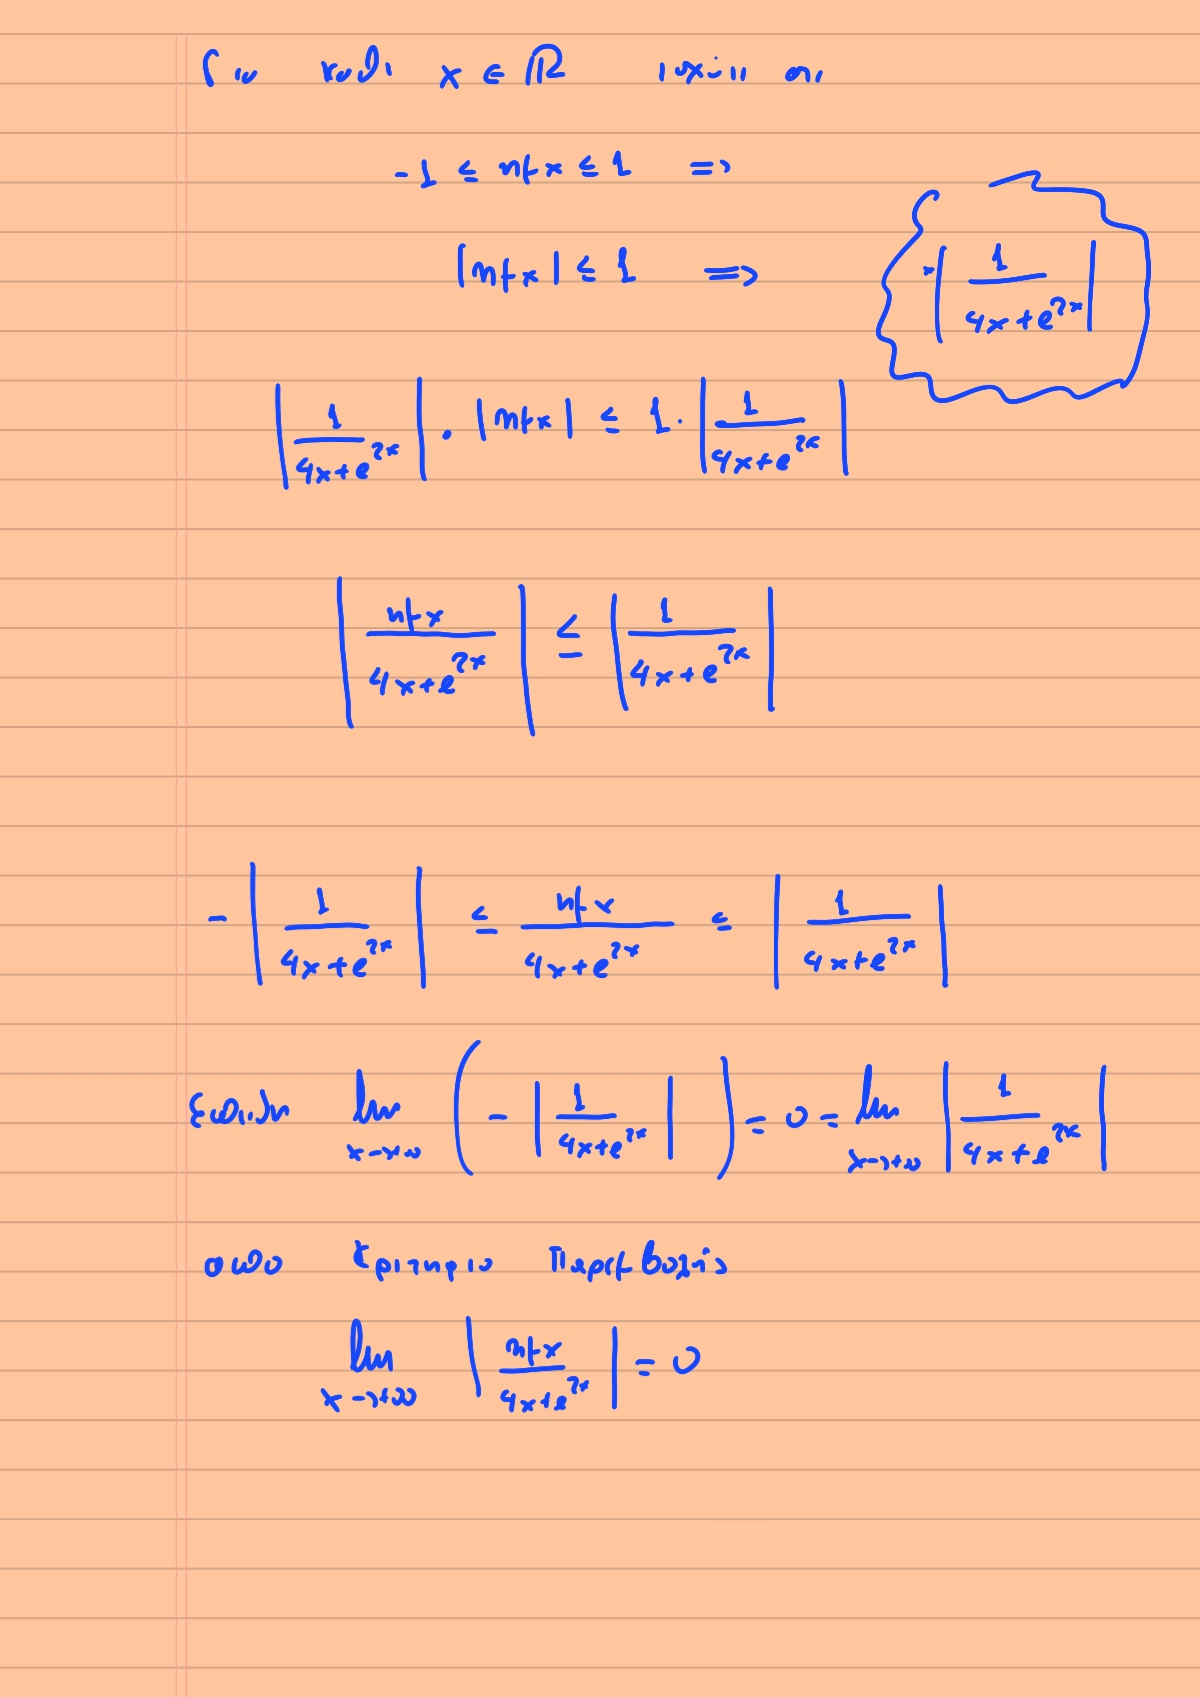 Για κάθε x ∈ ℝ ισχύει ότι
-1 ≤ ημx ≤ 1 =>
|ημx| ≤ 1 =>
· | 1 / (4x+e^{2x}) |
| 1 / (4x+e^{2x}) | · |ημx| ≤ 1 · | 1 / (4x+e^{2x}) |
| ημx / (4x+e^{2x}) | ≤ | 1 / (4x+e^{2x}) |
- | 1 / (4x+e^{2x}) | ≤ ημx / (4x+e^{2x}) ≤ | 1 / (4x+e^{2x}) |
Επειδή lim_{x→+∞} ( - | 1 / (4x+e^{2x}) | ) = 0 = lim_{x→+∞} | 1 / (4x+e^{2x}) |
από κριτήριο παρεμβολής
lim_{x→+∞} | ημx / (4x+e^{2x}) | = 0